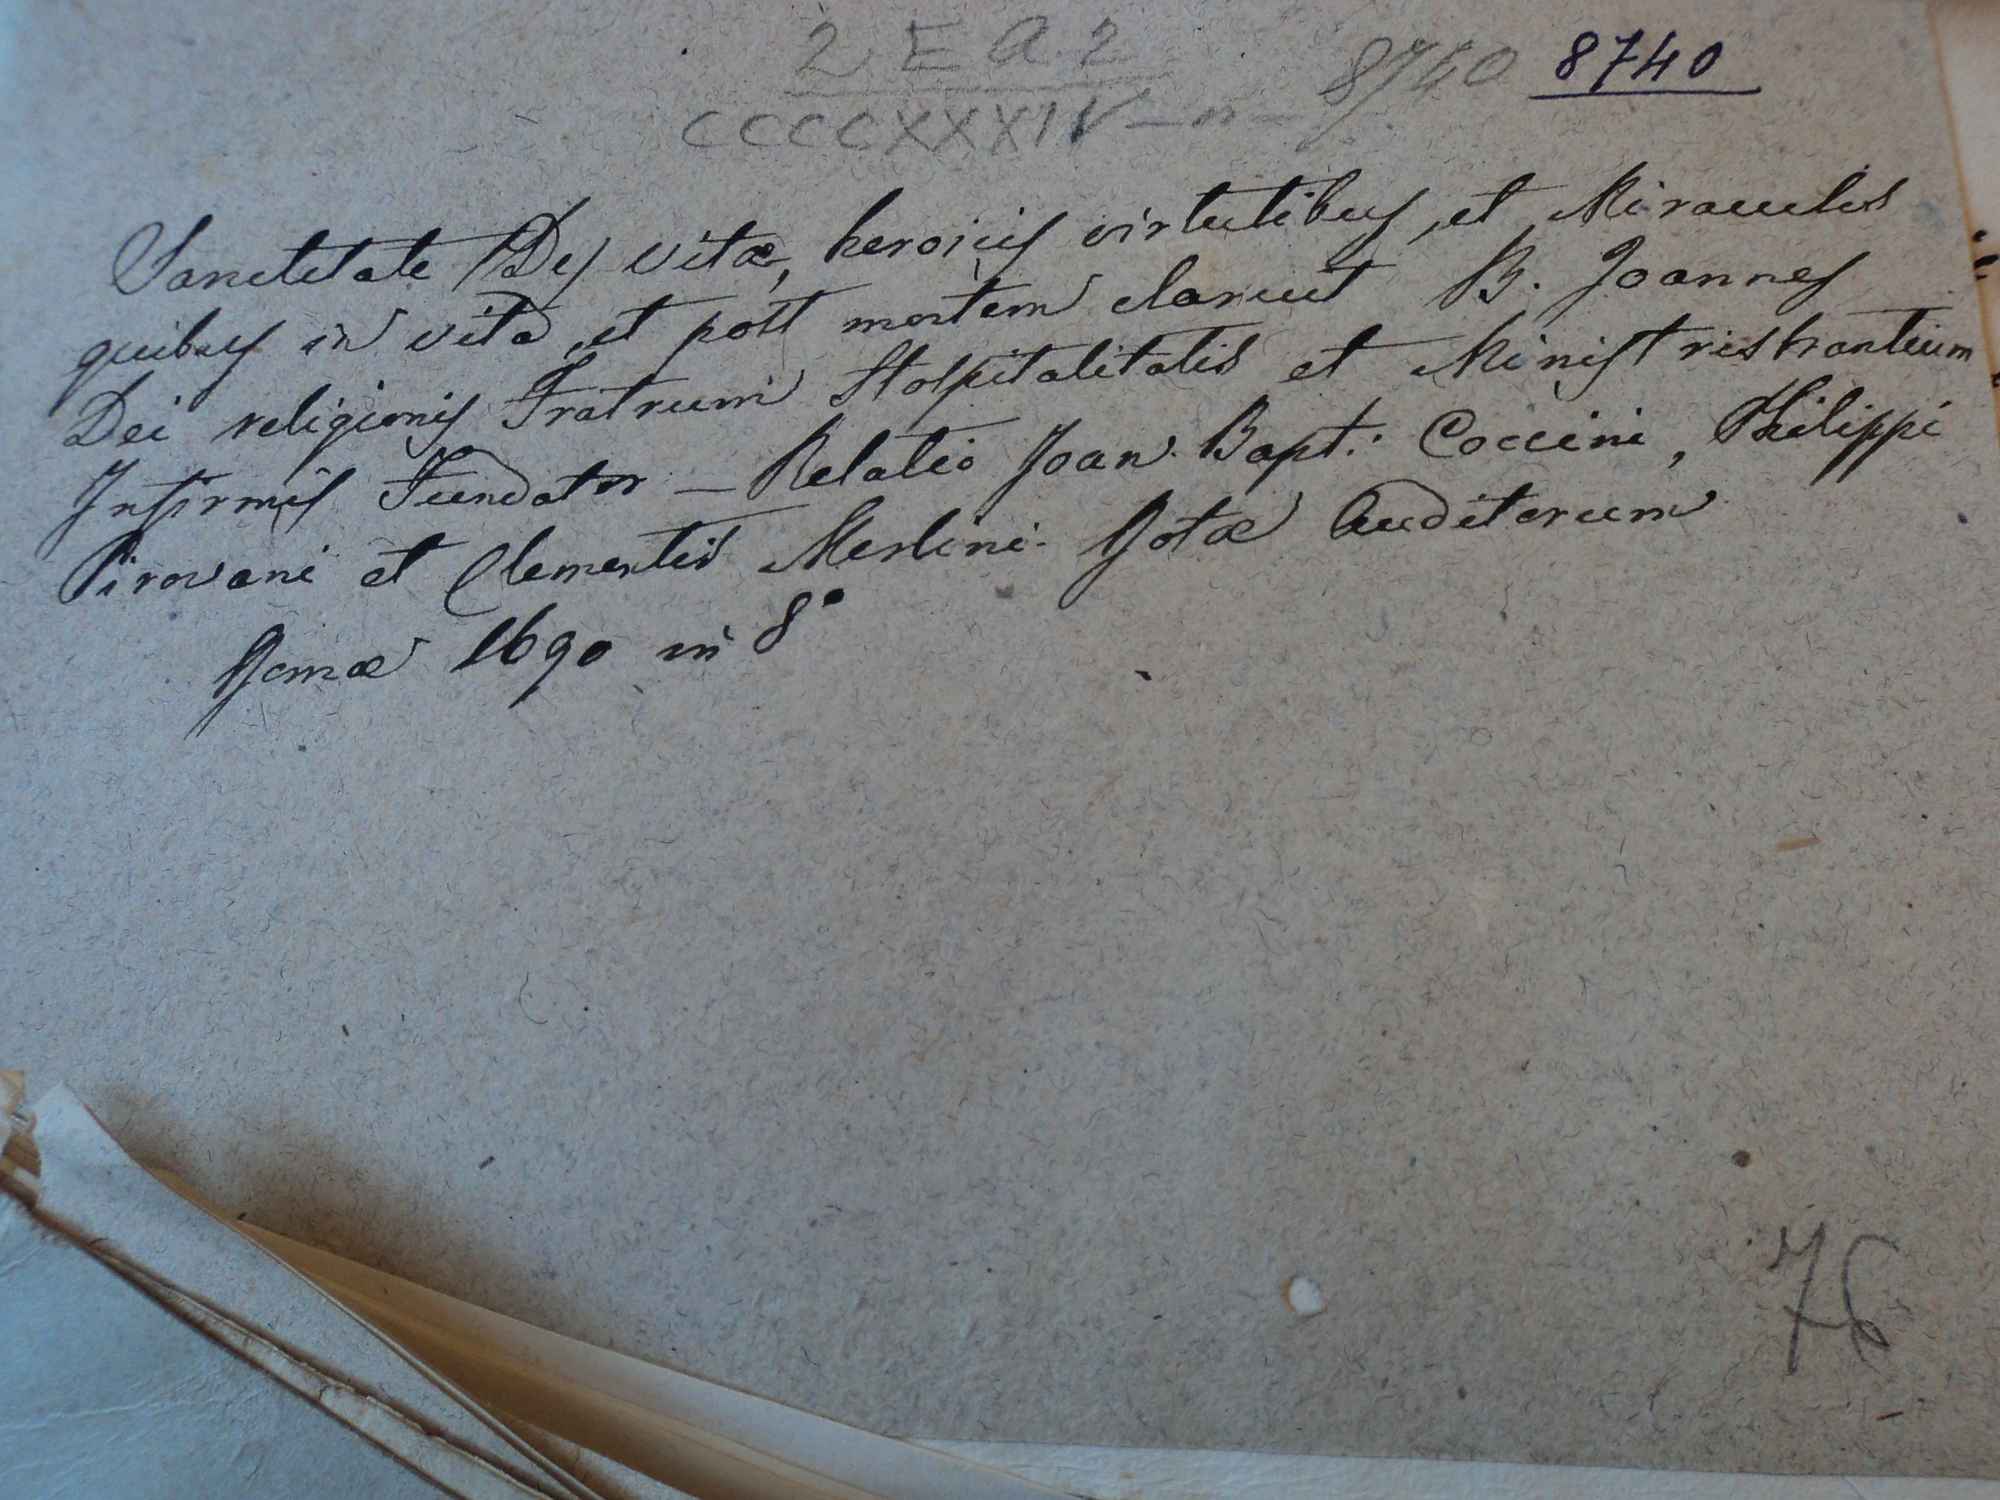 2 E A 2
CCCCXXXIV - n - 8740 8740
Sanctitate (De) vitæ, heroicis virtutibus, et Miraculis
quibus in vita, et post mortem claruit B. Joannes
Dei religionis Fratrum Hospitalitatis et Ministrishrantium
Infirmis Fundator - Relatio Joan. Bapt. Coccini, Philippi
Pirovani et Clementis Merlini. Rotæ Auditorum
Romæ 1690 in 8°
76